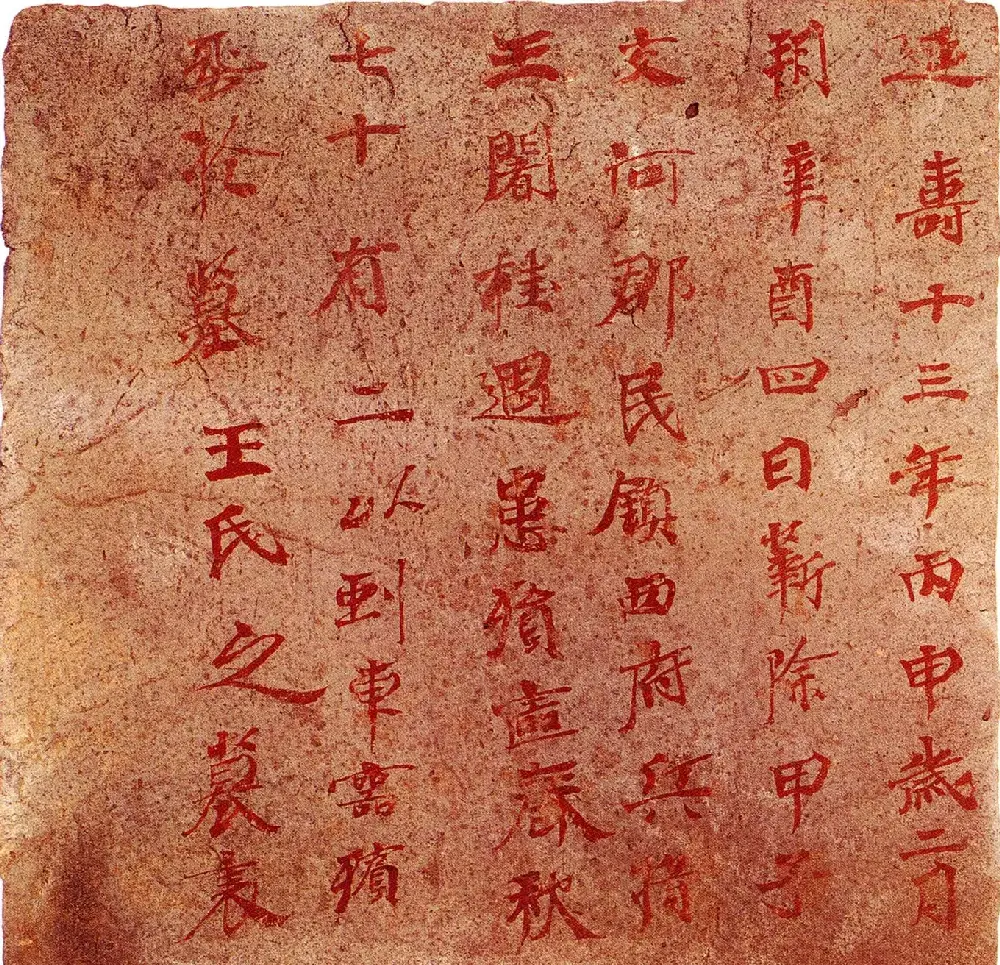 延壽十三年丙申歲二月
朔辛酉四日除甲子
交河郡民鎮西府兵將
王闍桂遇患殞春秋
七十有二以到車靈殯
葬於墓 王氏之墓表